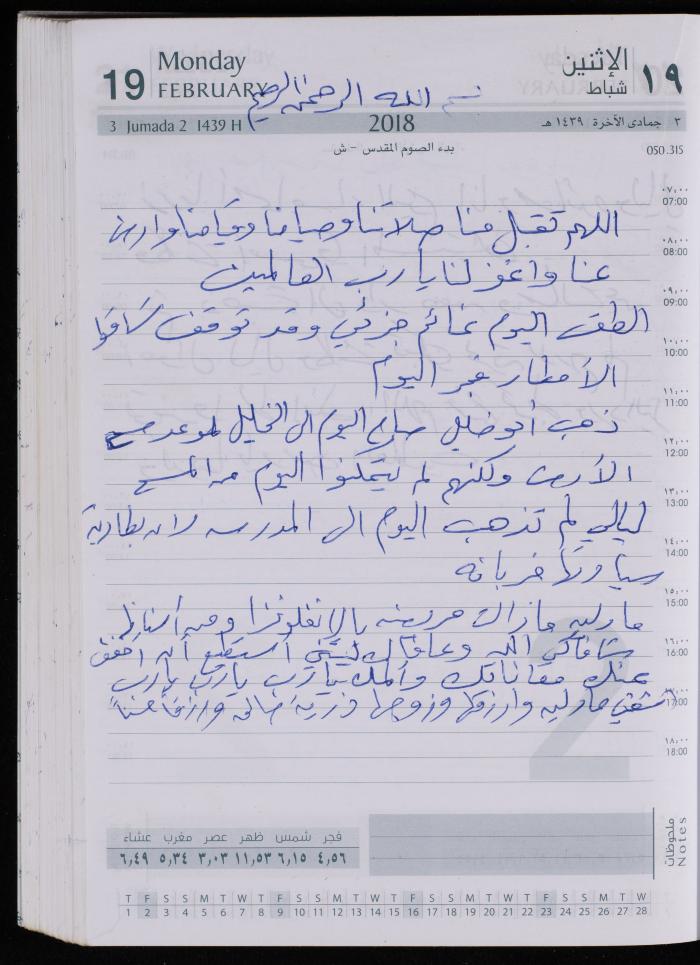 19 Monday FEBRUARY
الإثنين شباط ١٩
بسم الله الرحمن الرحيم
3 Jumada 2 1439 H 2018 ٣ جمادى الآخرة ١٤٣٩ هـ
بدء الصوم المقدس - ش 050.315
٠٧,٠٠ 07:00
اللهم تقبل منا صلاتنا وصيامنا وقيامنا وارض
٠٨,٠٠ 08:00
عنا واغفر لنا يا رب العالمين
٠٩,٠٠ 09:00
الطقس اليوم غائم جزئي وقد توقف تساقط
١٠,٠٠ 10:00
الأمطار فجر اليوم
١١,٠٠ 11:00
ذهب أبو خليل صباح اليوم الى الخليل لموعد مسح
١٢,٠٠ 12:00
الأرض ولكنهم لم يتمكنوا اليوم من المسح
١٣,٠٠ 13:00
ليالي لم تذهب اليوم الى المدرسه لان بطارية
١٤,٠٠ 14:00
سيارتها خربانه
١٥,٠٠ 15:00
مازالت مريضه بالإنفلونزا ومن
١٦,٠٠ 16:00
شافاكي الله وعافاك ليتني أستطيع أن أخفف
عنك معاناتك وألمك يا رب يا رب يا رب
١٧,٠٠ 17:00
اشفي وارزقها وزوجها ذرية صالحه
١٨,٠٠ 18:00
فجر شمس ظهر عصر مغرب عشاء
٤,٥٦ ٦,١٥ ١١,٥٣ ٣,٠٣ ٥,٣٤ ٦,٤٩
ملحوظات Notes
T F S S M T W T F S S M T W T F S S M T W T F S S M T W
1 2 3 4 5 6 7 8 9 10 11 12 13 14 15 16 17 18 19 20 21 22 23 24 25 26 27 28